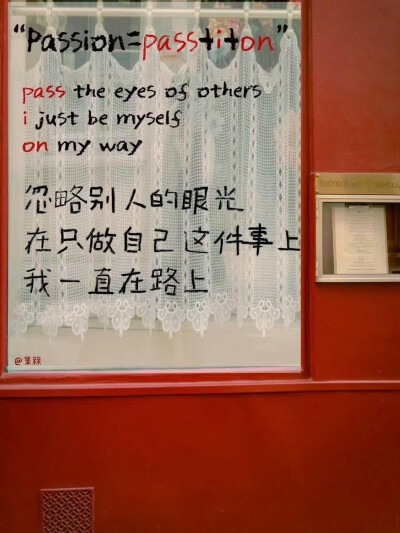 “Passion=pass+i+on”
pass the eyes of others
i just be myself
on my way
忽略别人的眼光
在只做自己这件事上
我一直在路上